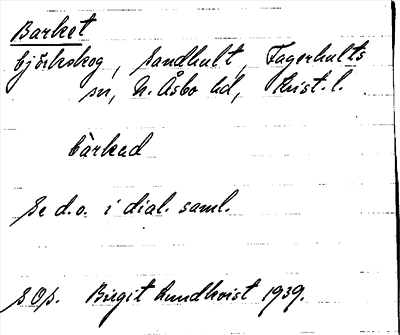 Barket
björkskog, Sandhult, Fagerhults
sn, N. Åsbo hd, Krist. l.
bàrkad
Se d.o. i dial. saml.
SOp. Birgit Lundkvist 1939.